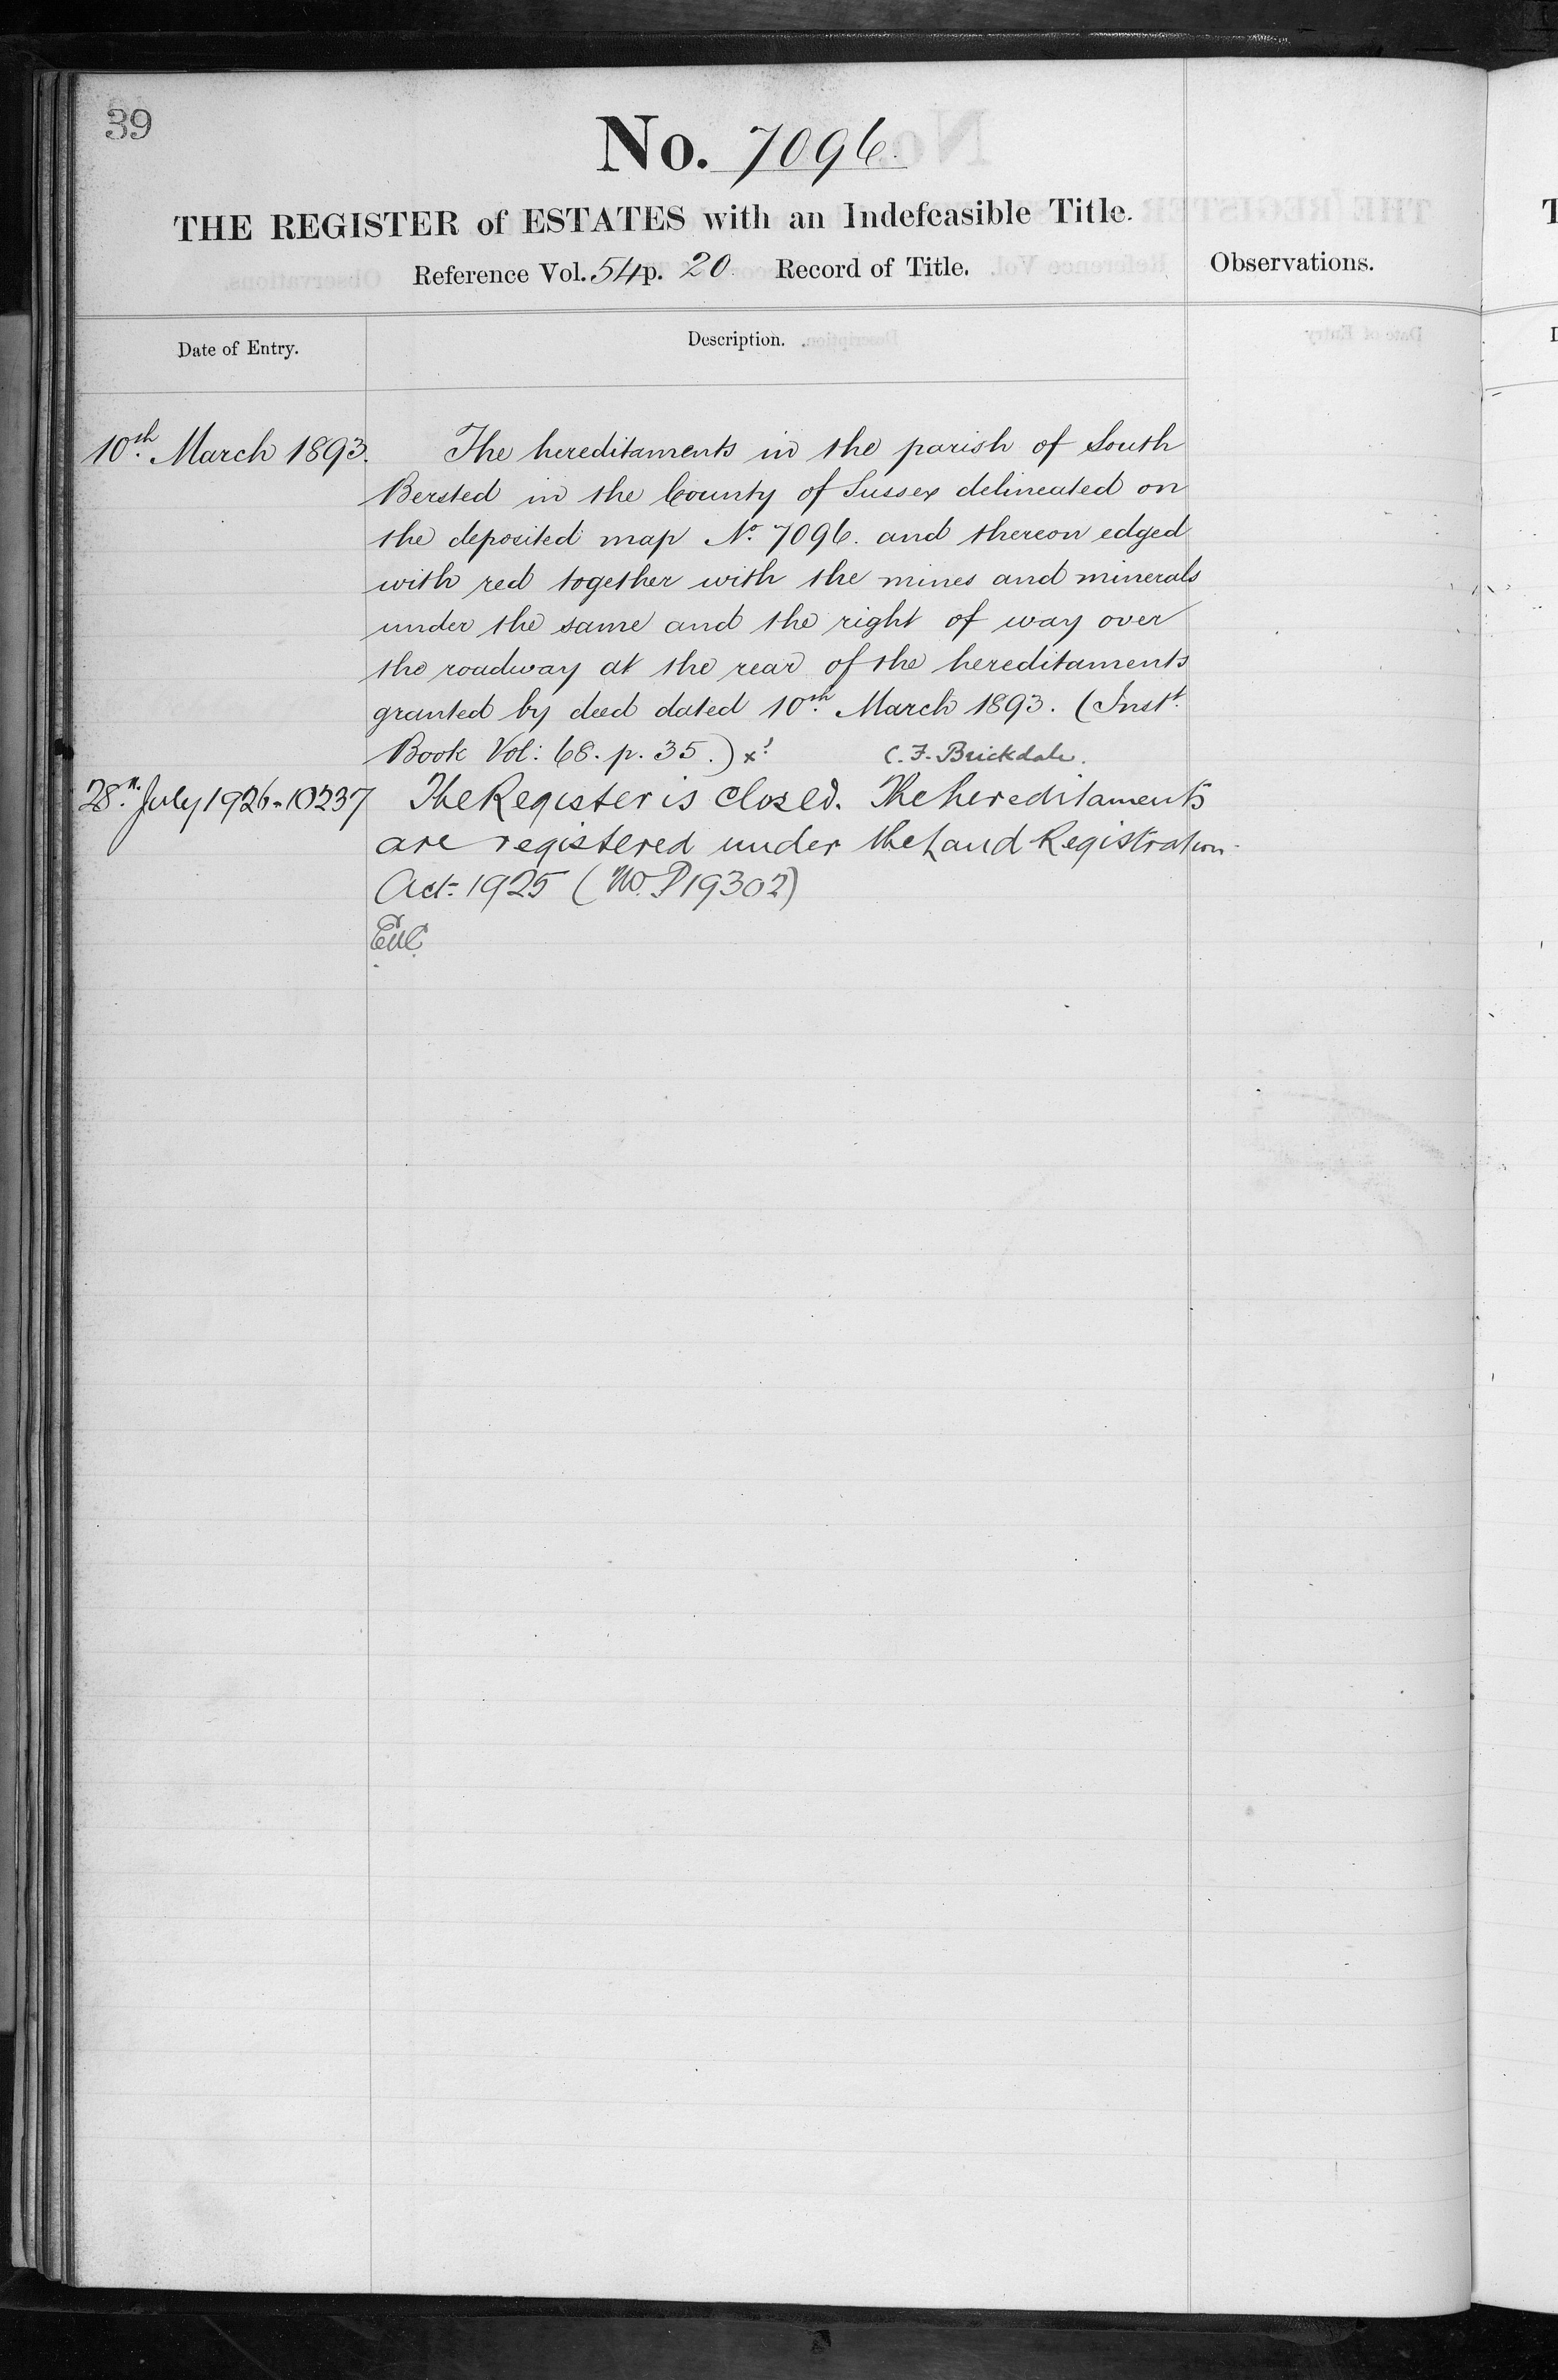 39
No. 7096.
THE REGISTER of ESTATES with an Indefeasible Title.
Reference Vol. 54 p. 20 Record of Title.
Observations.
Date of Entry.
Description.
10th March 1893.
The hereditaments in the parish of South
Bersted in the County of Sussex delineated on
the deposited map No. 7096. and thereon edged
with red together with the mines and minerals
under the same and the right of way over
the roadway at the rear of the hereditaments
granted by deed dated 10th March 1893. (Inst.
Book Vol: 68. p. 35.)
C. F. Brickdale.
28th July 1926-10237
The Register is closed. The hereditaments
are registered under the Land Registration
Act 1925 (No. P19302)